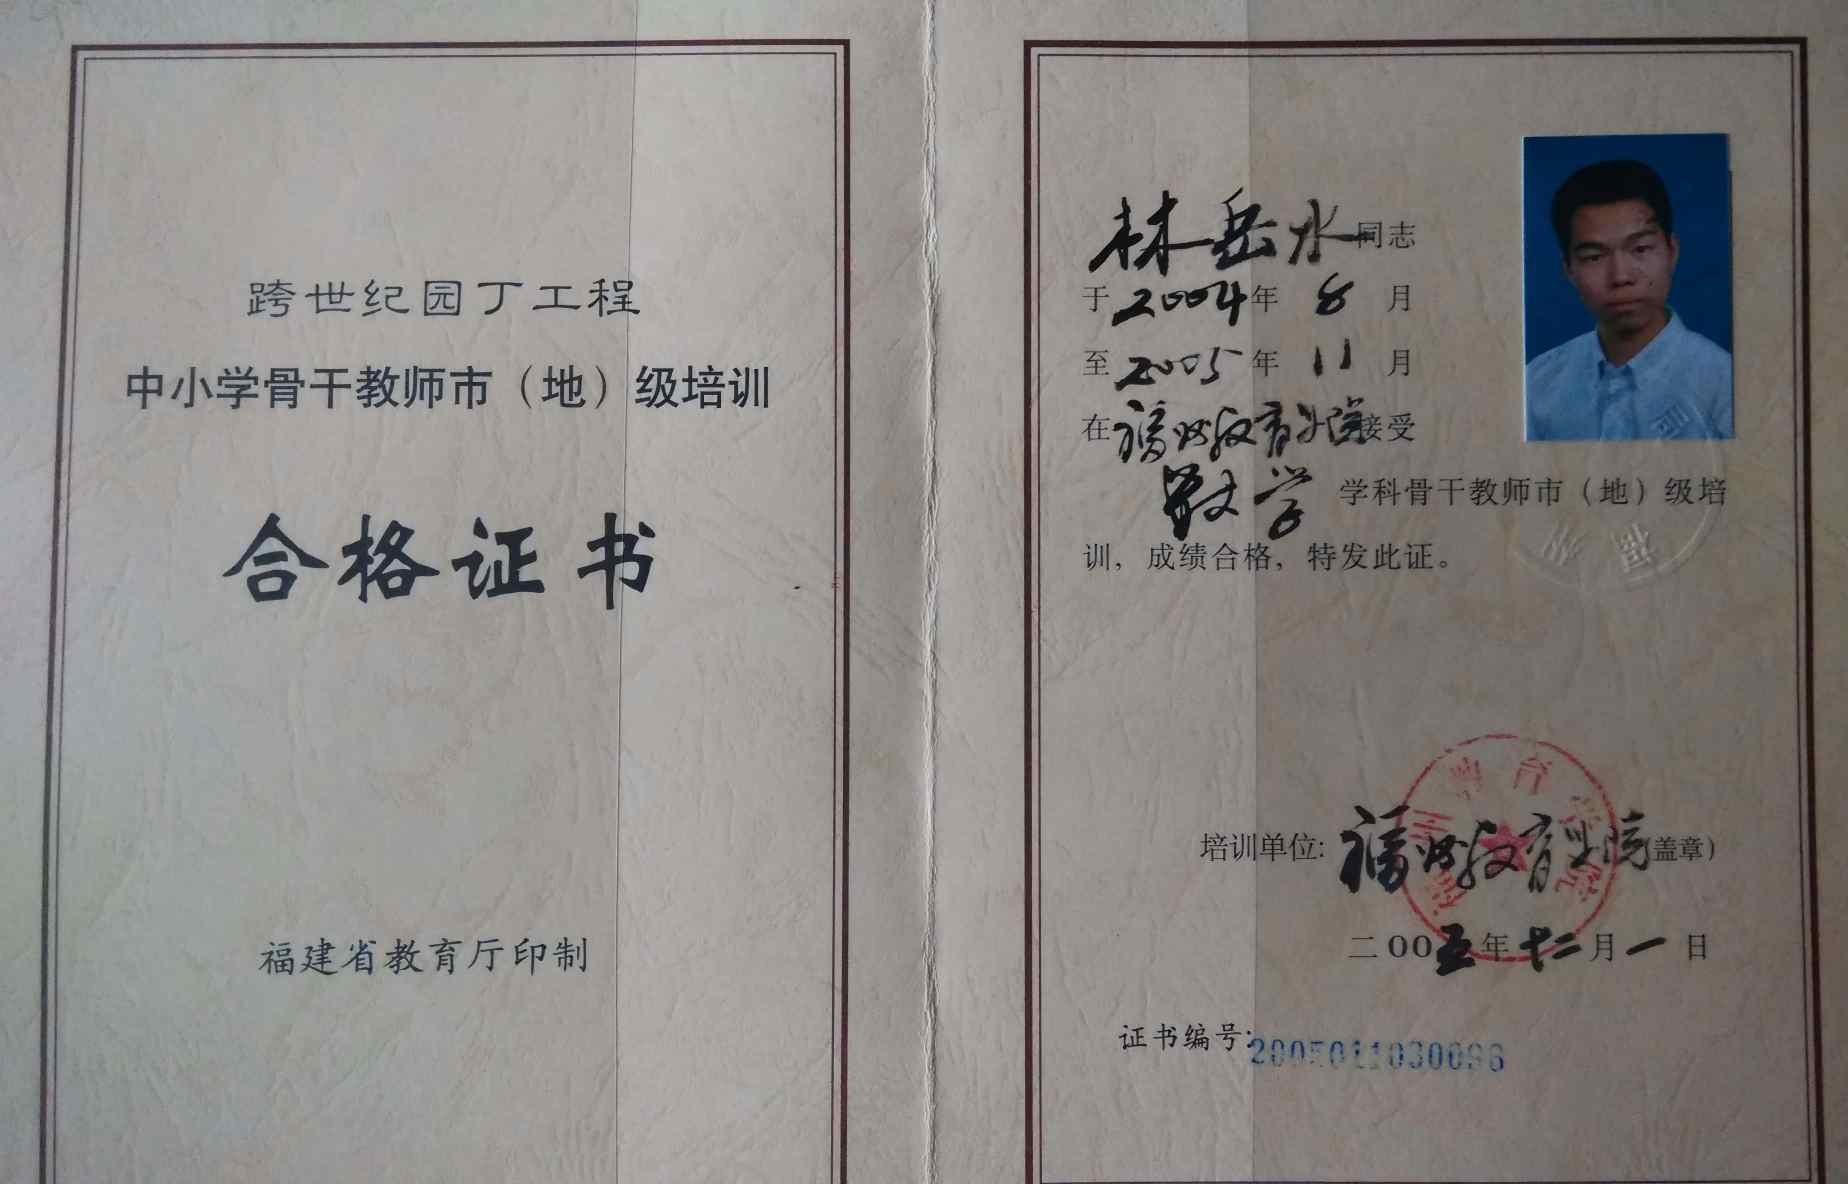 跨世纪园丁工程
中小学骨干教师市（地）级培训
合格证书
福建省教育厅印制
林岳水同志
于2004年8月
至2005年11月
在福州教育学院接受
数学学科骨干教师市（地）级培
训，成绩合格，特发此证。
培训单位:福州教育学院(盖章)
二00五年十二月一日
证书编号:2005011030096
福州教育学院